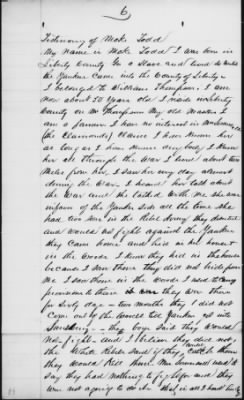 6
Testimony of Moke Todd
My name is Moke Todd I was born in
Liberty County Ga a Slave and lived so until
the Yankees Came into the County of Liberty
I belonged to William Thompson, I am
now about 50 Years old I reside in Liberty
County on Mr Thompson My old Master I
am a farmer I have no interest in
(the Claimants) Claim I have known her
as long as I have known any body, I knew
her all through the War I lived about two
Miles from her, I saw her my day almost
during the War, I heard her talk about
the War and She talked with Me She was
in favor of the Yankee Side all the time She
had two sons in the Rebel Army they deserted
and would not fight against the Yankees
they Came home and hid in her house &
in the Woods I know they hid in the house
because I saw them they did not hide from
Me I saw them in the Woods I used to
provisions to them they were there
for sixty days or two months they did not
Come out of the Woods till Yankees got into
the boys Said they would
not fight and I believe they did not,
the White Rebels Said if they Could Catch them
they would Kill them Mrs would
Say they had nothing to fight for and they
were not agoing to do it that is all I